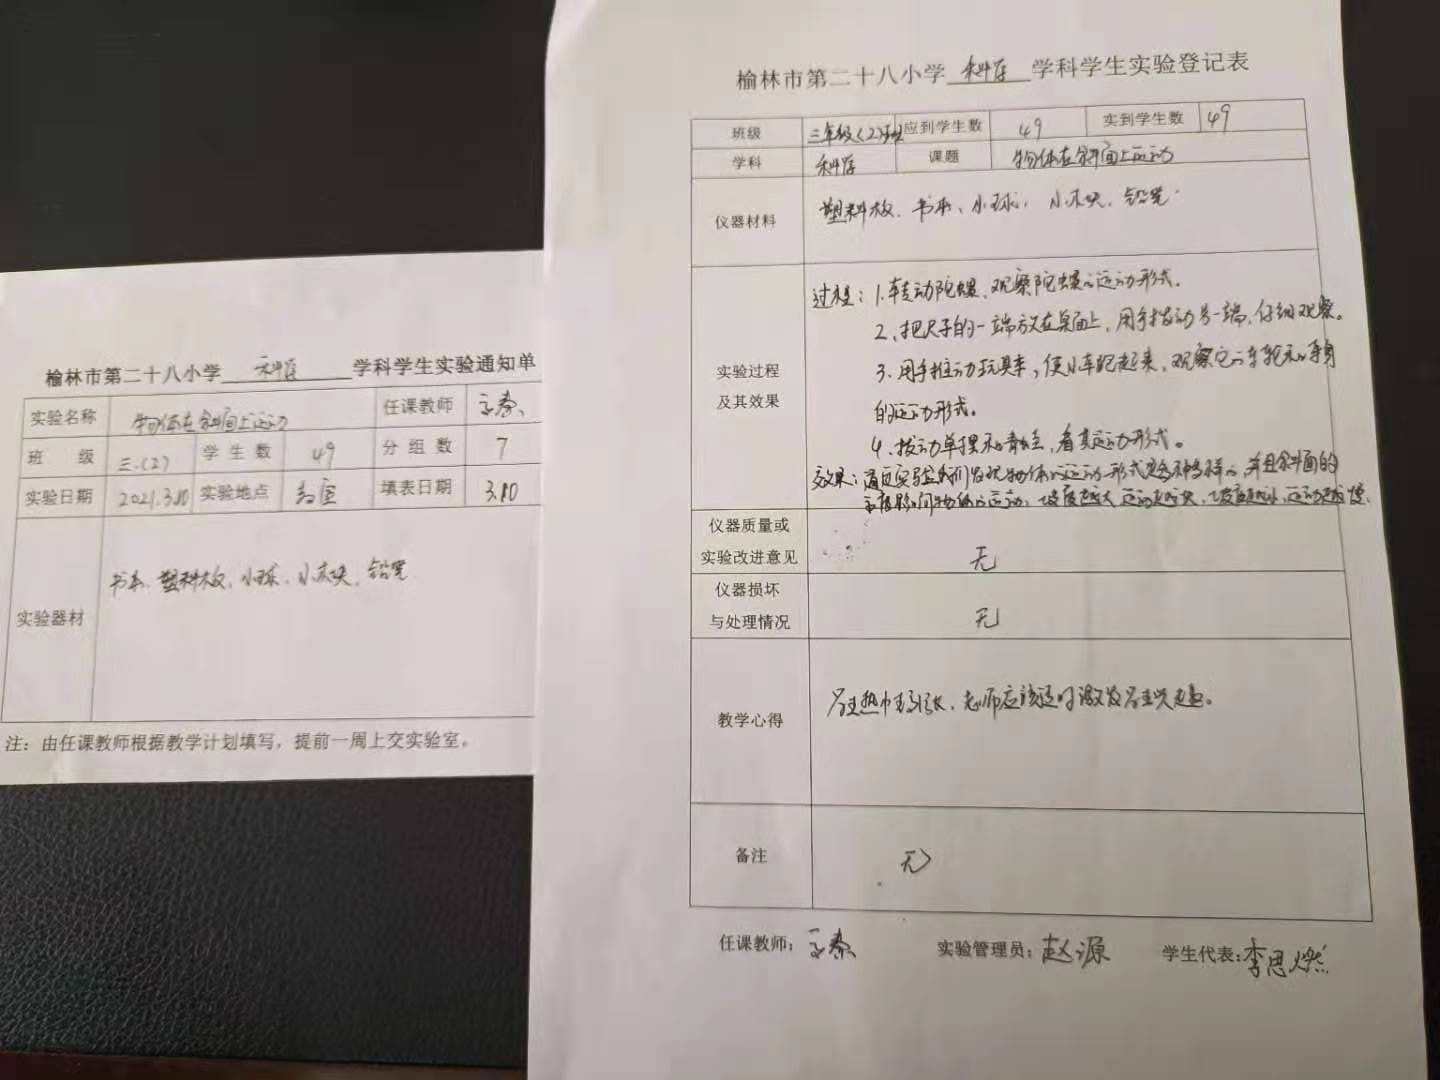 榆林市第二十八小学 科学 学科学生实验通知单
实验名称 物体在斜面上运动 任课教师
班 级 三.(2) 学生数 49 分组数 7
实验日期 2021.3.10 实验地点 教室 填表日期 3.10
实验器材 书本、塑料板、小球、小木块、铅笔
注：由任课教师根据教学计划填写，提前一周上交实验室。
榆林市第二十八小学 科学 学科学生实验登记表
班级 三年级(2)班 应到学生数 49 实到学生数 49
学科 科学 课题 物体在斜面上运动
仪器材料 塑料板、书本、小球、小木块、铅笔.
实验过程
及其效果
过程：1.转动陀螺、观察陀螺的运动形式。
2、把尺子的一端放在桌面上，用手拨动另一端，仔细观察。
3.用手推动玩具车，使小车跑起来，观察它的车轮和车身
的运动形式。
4.拨动单摆和，看其运动形式。
效果：通过实验我们发现物体的运动形式是多种多样的，并且斜面的
影响物体的运动，坡度越大，运动越快，坡度越小，运动越慢.
仪器质量或
实验改进意见 无
仪器损坏
与处理情况 无
教学心得 学生热情高涨，老师应该适时激发学生兴趣。
备注 无
任课教师： 实验管理员：赵源 学生代表：李思燃